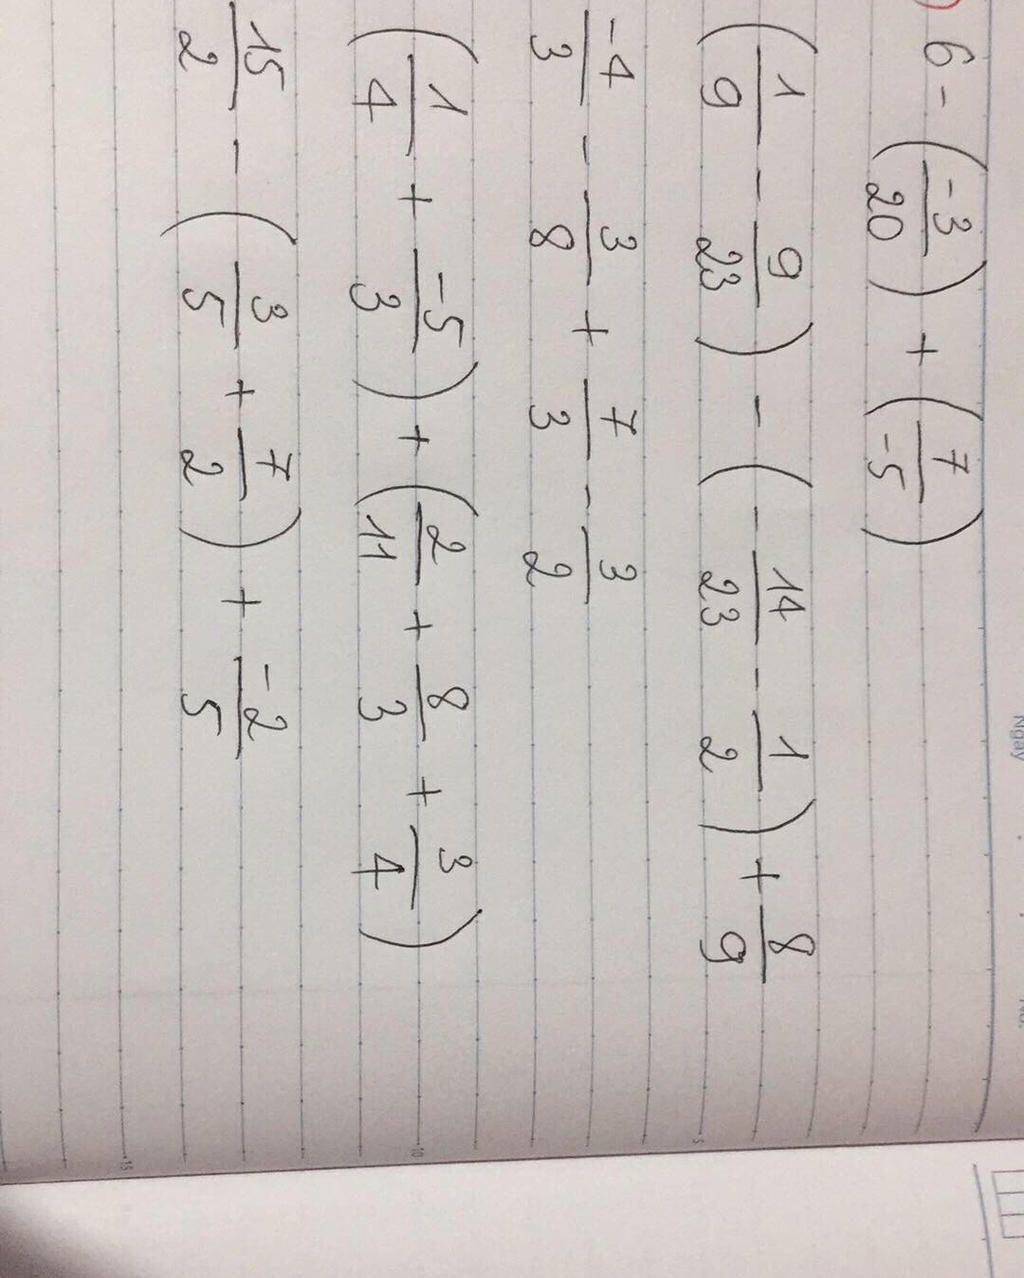 ) 6 - (-3/20) + (7/-5)
(1/9 - 9/23) - (-14/23 - 1/2) + 8/9
-4/3 - 3/8 + 7/3 - 3/2
(1/4 + -5/3) + (2/11 + 8/3 + 3/4)
15/2 - (3/5 + 7/2) + -2/5
Ngày
5
10
15